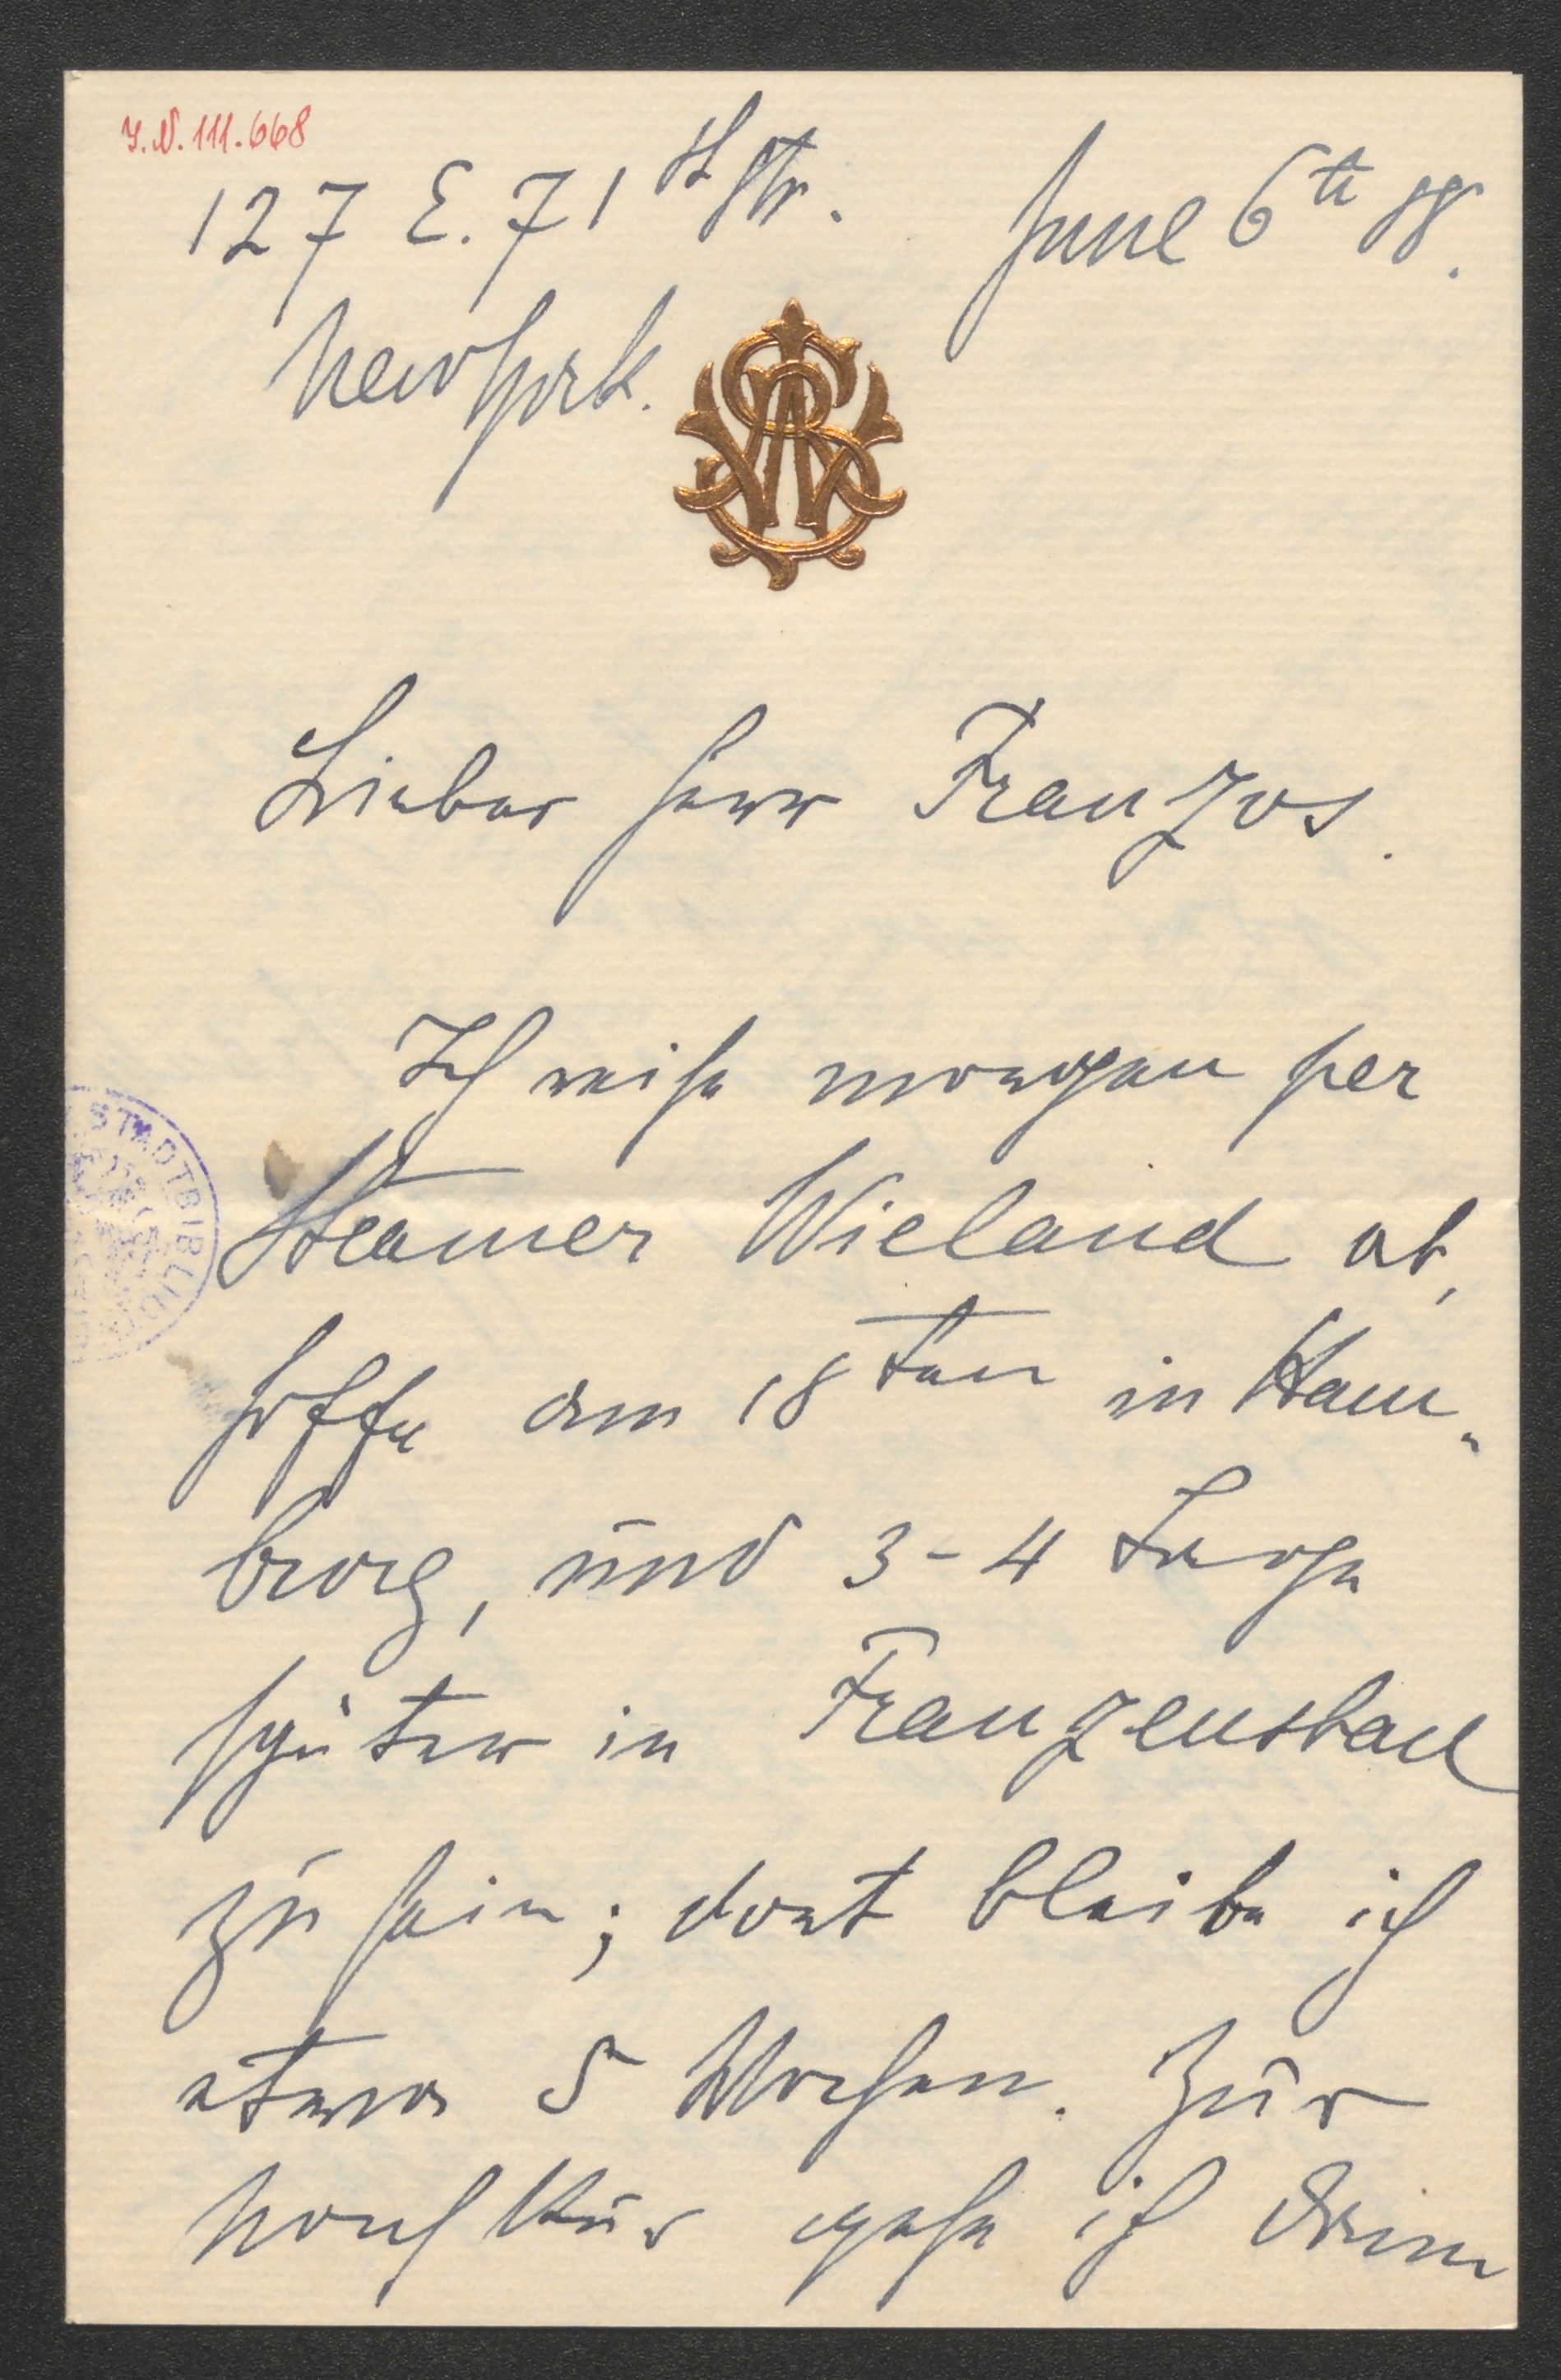 J.N. 111.668
127 E. 71st Str. June 6th 88.
New York.
Lieber Herr Franzos.
Ich reise morgen per
Steamer Wieland ab,
hoffe am 18ten in Ham-
burg, und 3-4 Tage
später in Franzensbad
zu sein; dort bleibe ich
etwa 5 Wochen. Zur
Nachkur gehe ich dann
STADTBIBLIO